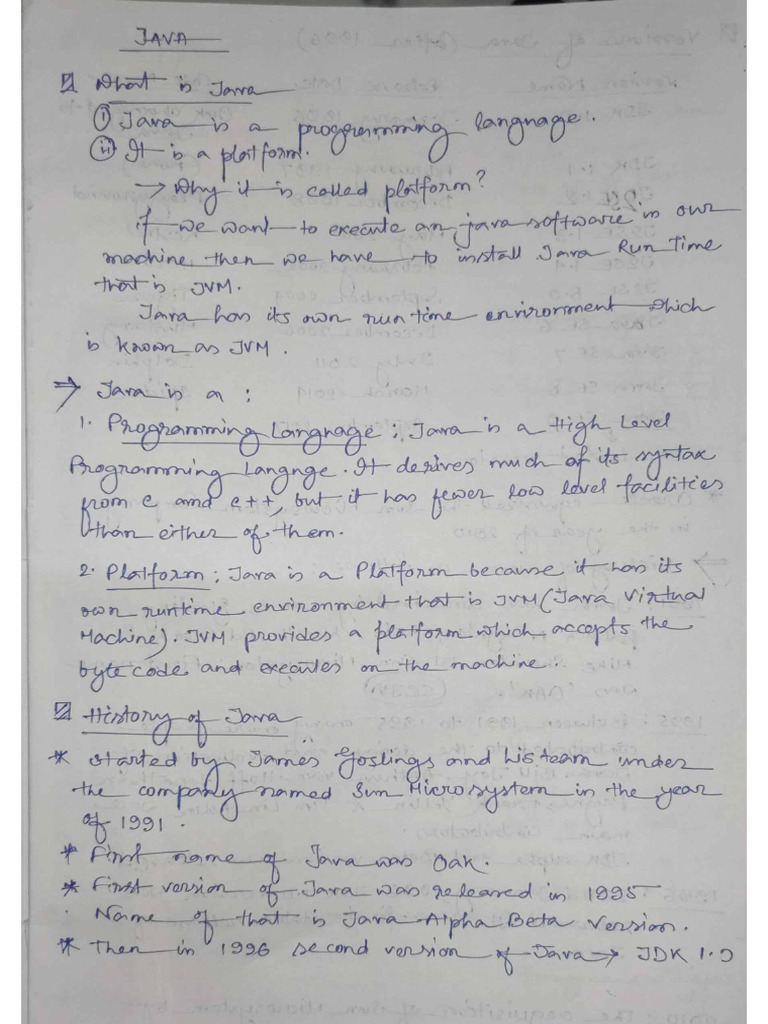 JAVA
What is Java
(i) Java is a programming language.
(ii) It is a platform.
→ Why it is called platform?
if we want to execute an java software in our
machine then we have to install Java Run Time
that is JVM.
Java has its own run time environment which
is known as JVM.
⇒ Java is a :
1. Programming Language : Java is a High Level
Programming Langnge. It derives much of its syntax
from c and c++, but it has fewer low level facilities
than either of them.
2. Platform : Java is a Platform because it has its
own runtime environment that is JVM (Java Virtual
Machine). JVM provides a platform which accepts the
byte code and executes on the machine.
History of Java
* started by James Goslings and his team under
the company named Sun Microsystem in the year
of 1991.
* First name of Java was Oak.
* First version of Java was released in 1995
Name of that is Java Alpha Beta Version.
* Then in 1996 second version of Java → JDK 1.0